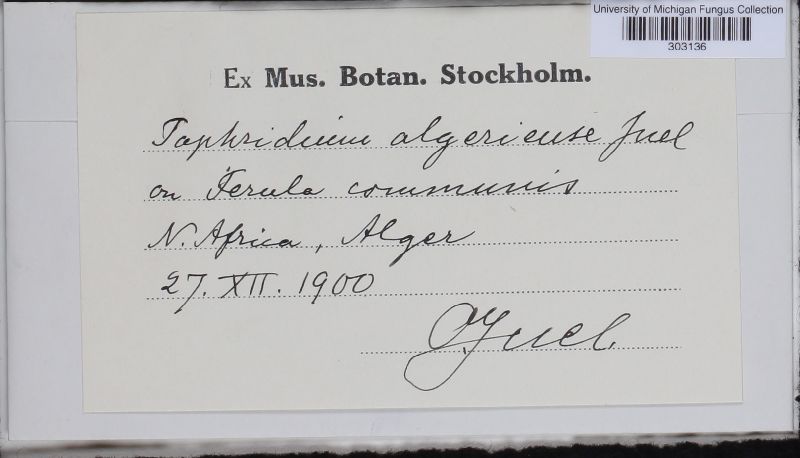 University of Michigan Fungus Collection
303136
Ex Mus. Botan. Stockholm.
Taphridium algeriense Juel
on Ferula communis
N. Africa, Alger
27. XII. 1900
O. Juel.